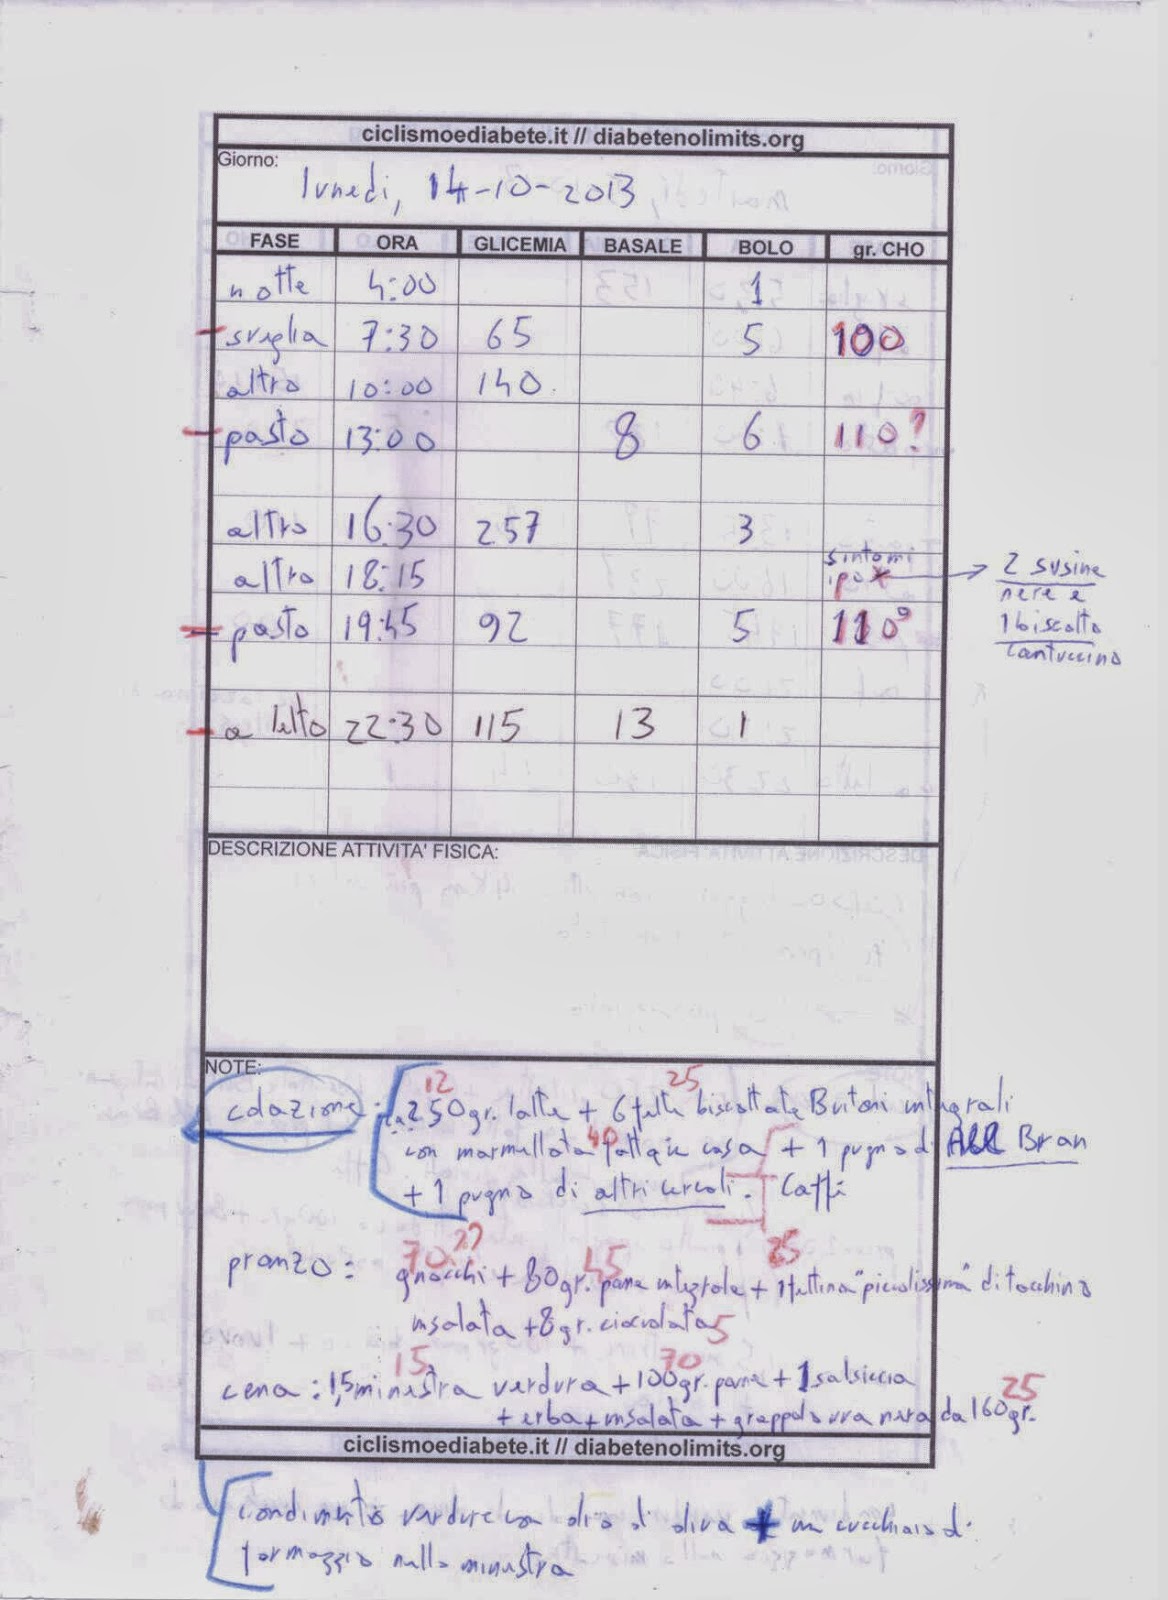 ciclismoediabete.it // diabetenolimits.org
Giorno:
lunedi, 14-10-2013
FASE ORA GLICEMIA BASALE BOLO gr. CHO
notte 4:00 1
sveglia 7:30 65 5 100
altro 10:00 140
pasto 13:00 8 6 110?
altro 16:30 257 3
altro 18:15 sintomi ipo → 2 susine
nere e
1 biscotto
cantuccino
pasto 19:45 92 5 110
a letto 22:30 115 13 1
DESCRIZIONE ATTIVITA' FISICA:
NOTE:
12 25
colazione: 250gr. latte + 6 fette biscottate Buitoni integrali
40
con marmellata fatta in casa + 1 pugno di All Bran
+ 1 pugno di altri cereali. Caffè
70?? 45 25
pranzo: gnocchi + 80gr. pane integrale + 1 fettina "piccolissima" di tacchino
insalata + 8 gr. cioccolata 5
15 70
cena: 1,5 minestra verdura + 100gr. pane + 1 salsiccia
25
+ erba + insalata + grappolo uva nera da 160gr.
ciclismoediabete.it // diabetenolimits.org
condimento verdure con olio d'oliva + un cucchiaio di
formaggio nella minestra